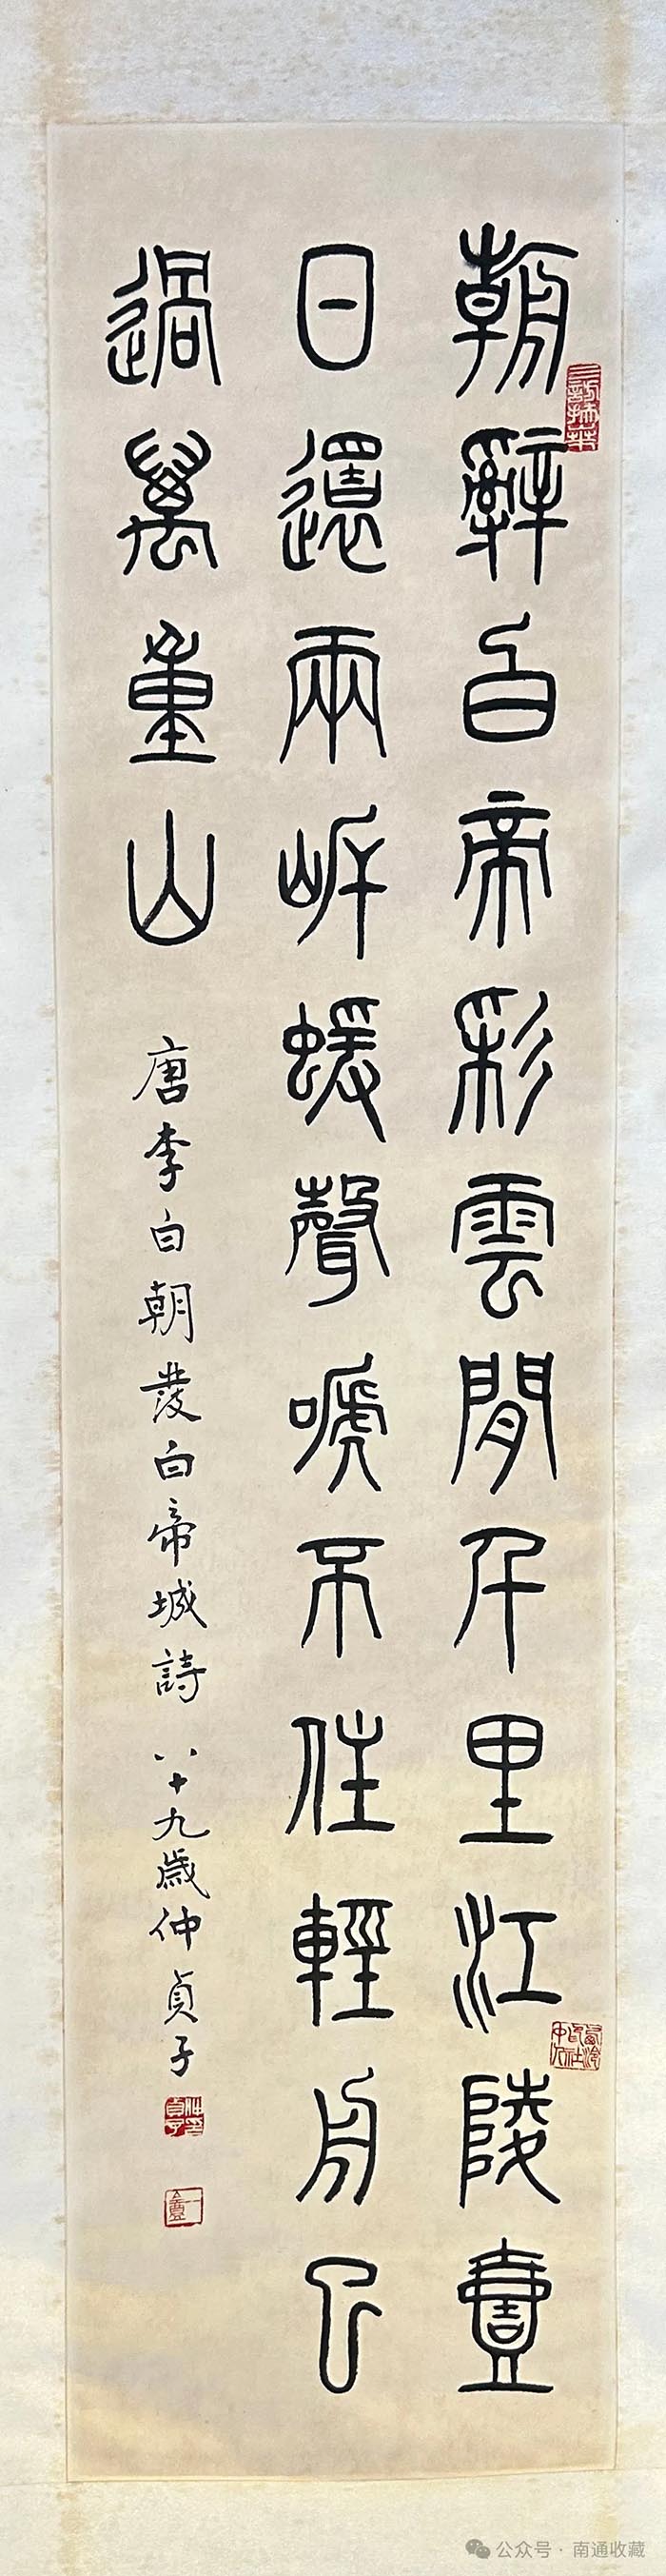 朝辭白帝彩雲閒千里江陵壹
日還兩岸蝯聲嗁不住輕舟已
過萬重山
唐李白朝發白帝城詩 八十九歲仲貞子
公众号 · 南通收藏